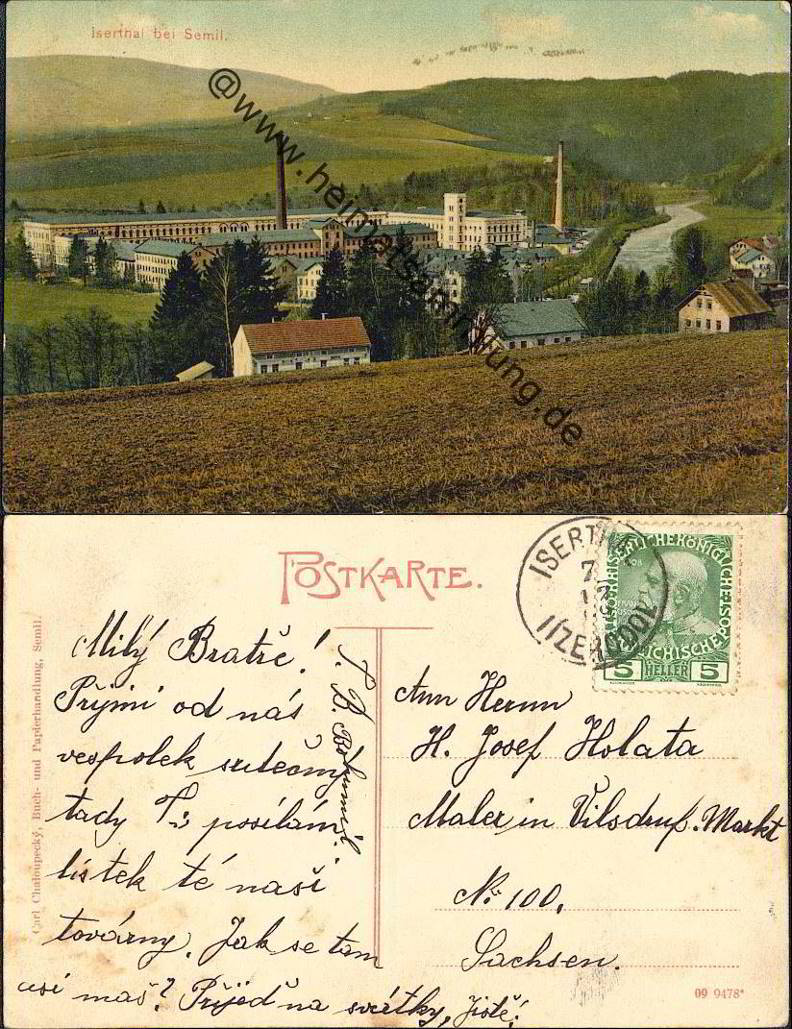 Iserthal bei Semil.
@www.heimatsammlung.de
POSTKARTE.
Carl Chaloupecký, Buch- und Papierhandlung, Semil.
ISERTHAL
7
JIZERODOL
5 HELLER 5
Milý Bratře!
Přijmi od nás
vespolek srdečný
tady Ti posílám
lístek té naší
továrny. Jak se tam
asi maš? Přijeď na svátky, jistě!
B. Bohumil.
Ann Herrn
H. Josef Holata
Maler in Vilsdruf. Markt
No 100.
Sachsen.
09 9478*